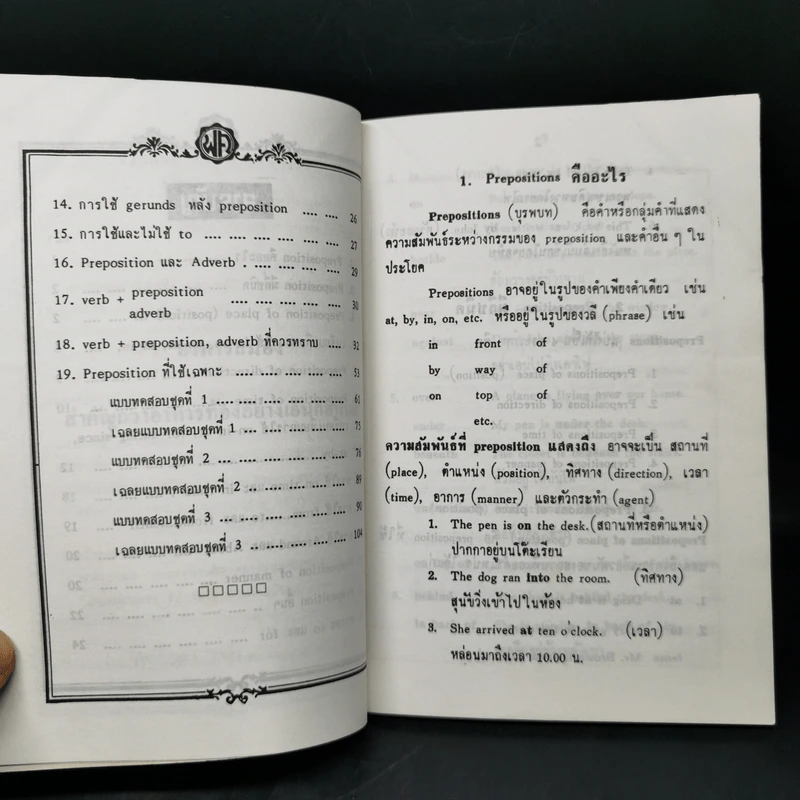 14. การใช้ gerunds หลัง preposition .... .... 26
15. การใช้และไม่ใช้ to .... .... .... .... .... 27
16. Preposition และ Adverb . .... .... .... 29
17. verb + preposition
adverb .... .... .... .... 30
18. verb + preposition, adverb ที่ควรทราบ .... 32
19. Preposition ที่ใช้เฉพาะ .... .... .... .... 53
แบบทดสอบชุดที่ 1 .... .... .... .... 61
เฉลยแบบทดสอบชุดที่ 1 .... .... .... 75
แบบทดสอบชุดที่ 2 .... .... .... .... 76
เฉลยแบบทดสอบชุดที่ 2 .... .... .... 89
แบบทดสอบชุดที่ 3 .... .... .... .... 90
เฉลยแบบทดสอบชุดที่ 3 .. .... .... .... 104
1. Prepositions คืออะไร
Prepositions (บุรพบท) คือคำหรือกลุ่มคำที่แสดง
ความสัมพันธ์ระหว่างกรรมของ preposition และคำอื่น ๆ ใน
ประโยค
Prepositions อาจอยู่ในรูปของคำเพียงคำเดียว เช่น
at, by, in, on, etc. หรืออยู่ในรูปของวลี (phrase) เช่น
in front of
by way of
on top of
etc.
ความสัมพันธ์ที่ preposition แสดงถึง อาจจะเป็น สถานที่
(place), ตำแหน่ง (position), ทิศทาง (direction), เวลา
(time), อาการ (manner) และตัวกระทำ (agent)
1. The pen is on the desk.(สถานที่หรือตำแหน่ง)
ปากกาอยู่บนโต๊ะเรียน
2. The dog ran into the room. (ทิศทาง)
สุนัขวิ่งเข้าไปในห้อง
3. She arrived at ten o'clock. (เวลา)
หล่อนมาถึงเวลา 10.00 น.